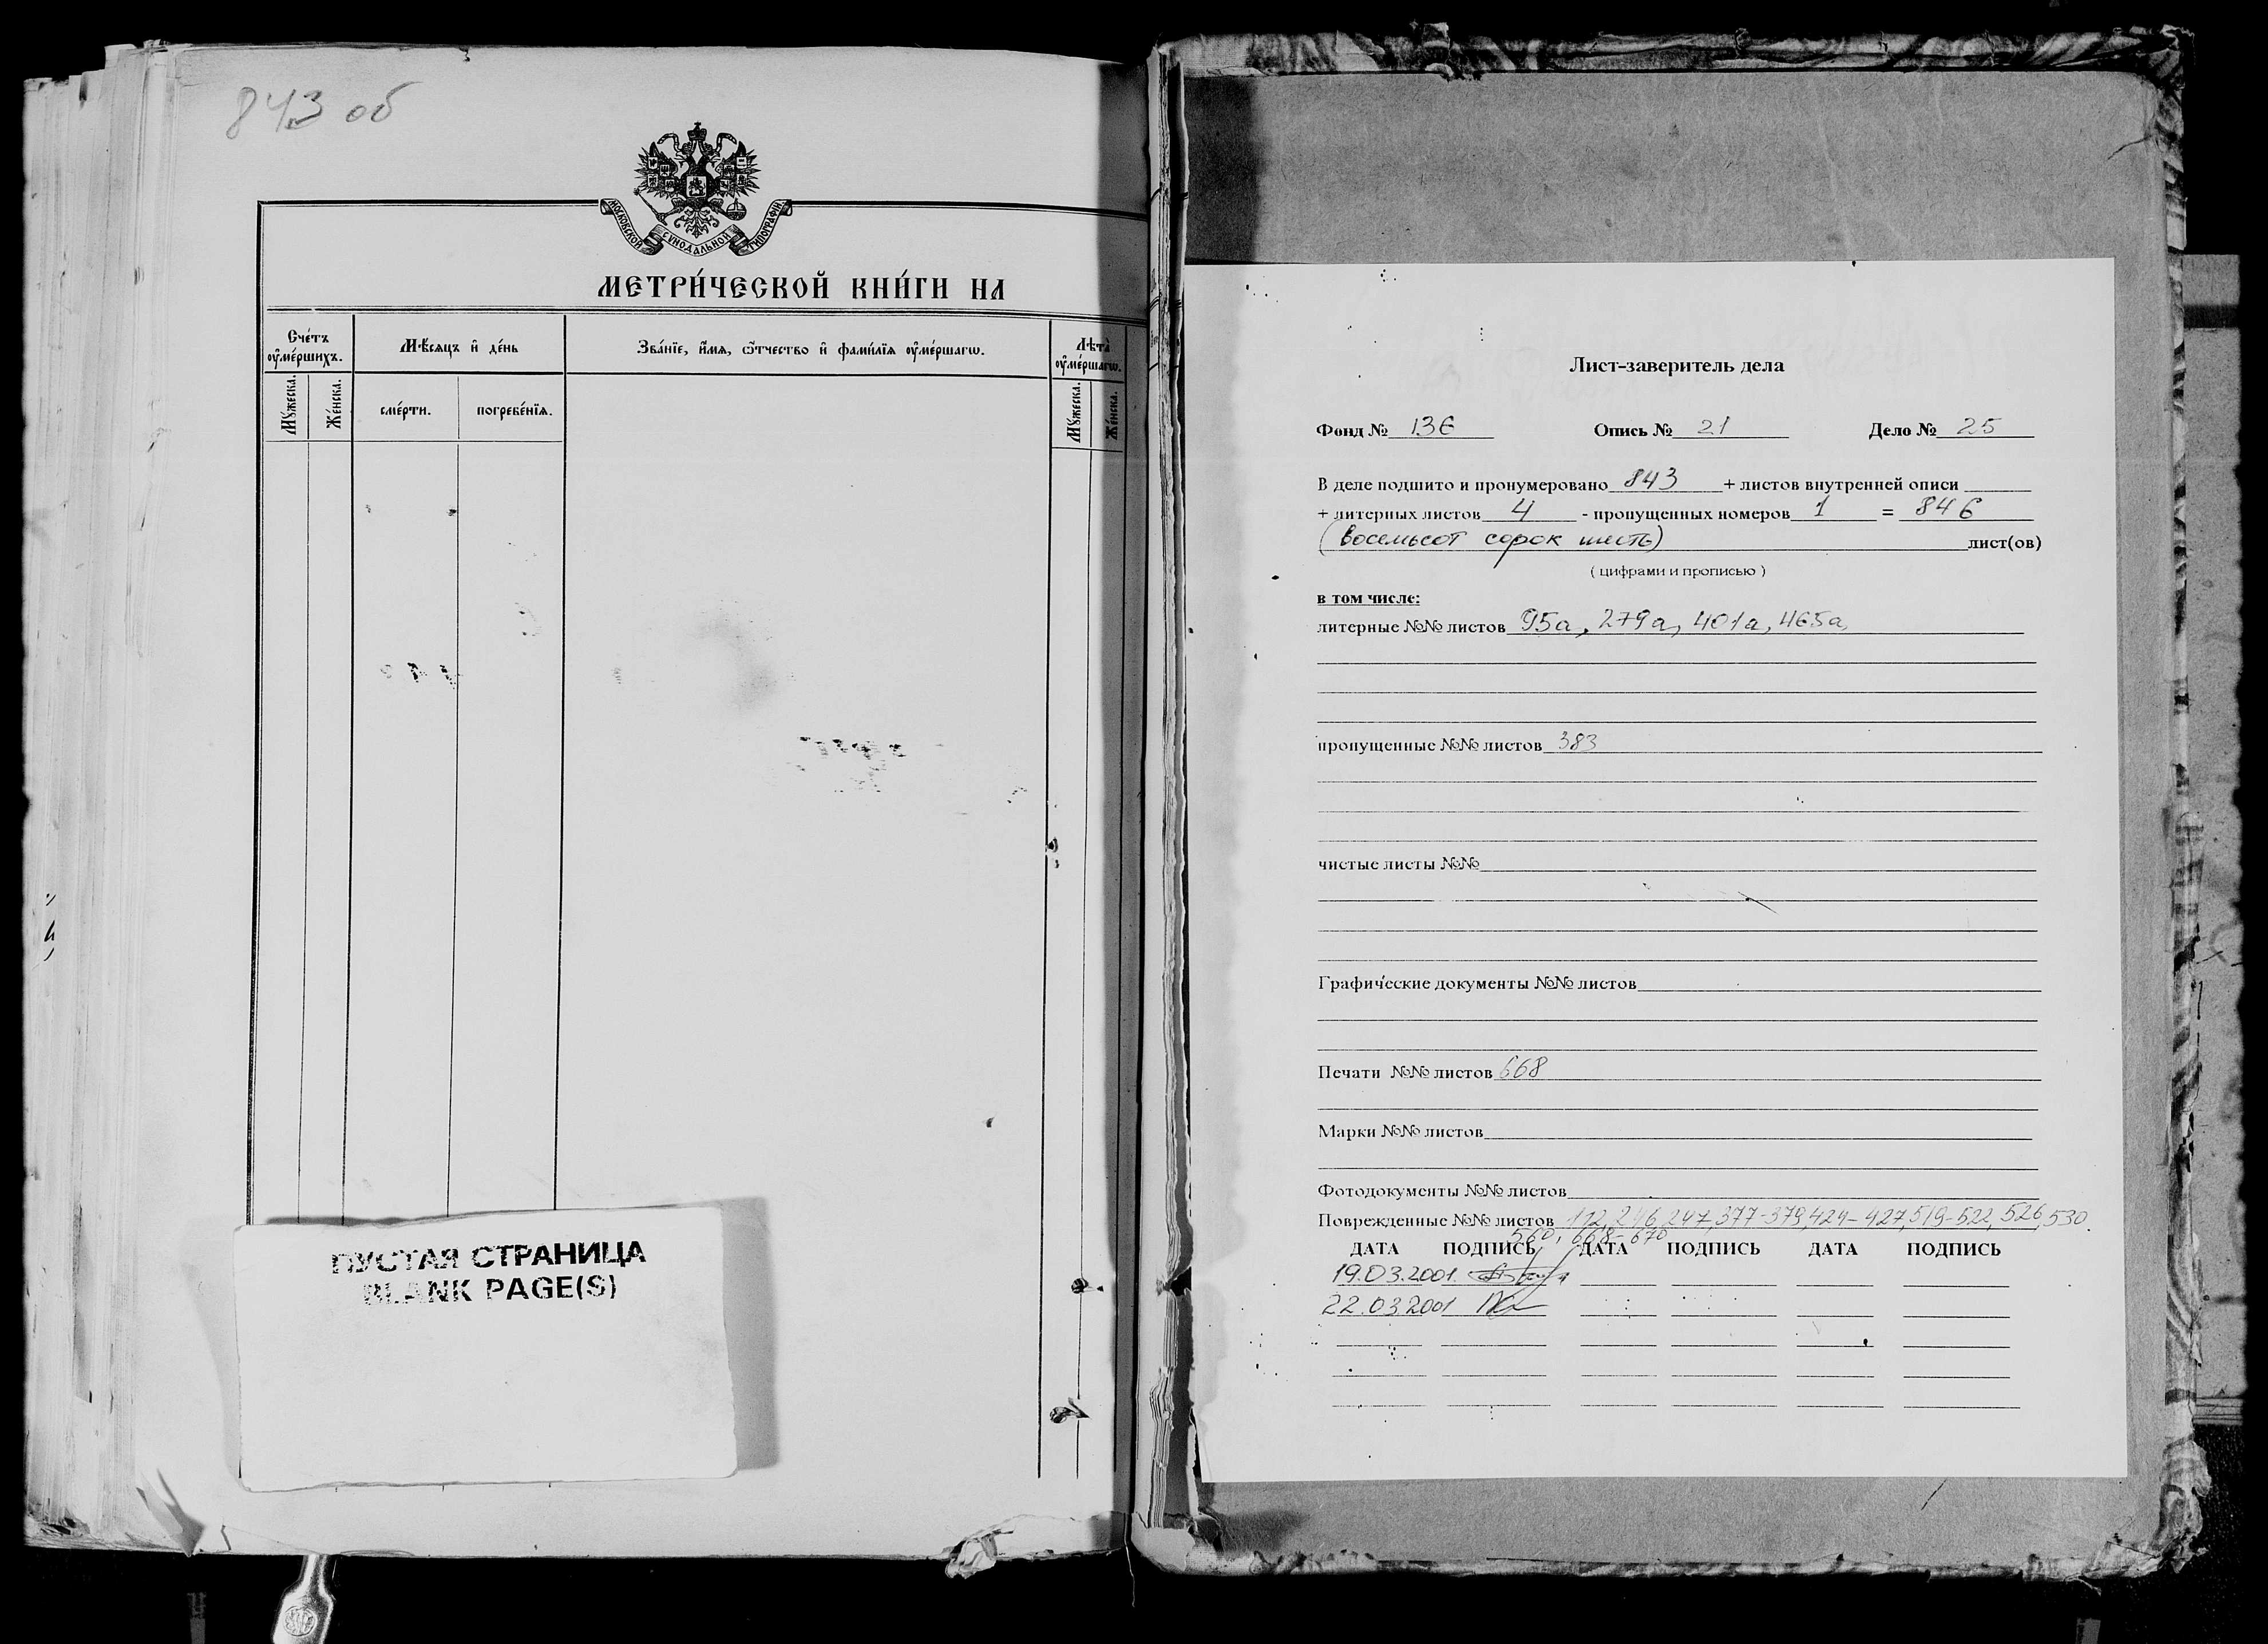 843 об
МОСКОВСКОЙ СѴНОДАЛЬНОЙ ТИПОГРАФІИ
МЕТРИ́ЧЕСКОЙ КНИ́ГИ НА
Сче́тъ оу҆ме́ршихъ.
Мѣ́сяцъ и҆ де́нь
Зва́нїе, и҆́мя, ѻ҆́тчество и҆ фами́лїя оу҆ме́ршагѡ.
Лѣта̀ оу҆ме́ршагѡ.
Мꙋ́жеска.
Же́нска.
сме́рти.
погребе́нїя.
Мꙋ́жеска.
Же́нска.
ПУСТАЯ СТРАНИЦА
BLANK PAGE(S)
Лист-заверитель дела
Фонд № 136 Опись № 21 Дело № 25
В деле подшито и пронумеровано 843 + листов внутренней описи
+ литерных листов 4 - пропущенных номеров 1 = 846
(восемьсот сорок шесть) лист(ов)
( цифрами и прописью )
в том числе:
литерные №№ листов 95а, 279а, 401а, 465а,
пропущенные №№ листов 383
чистые листы №№
Графические документы №№ листов
Печати №№ листов 668
Марки №№ листов
Фотодокументы №№ листов
Поврежденные №№ листов 112, 246, 247, 377-379, 424-427, 519-522, 526, 530.
560, 668-670
ДАТА ПОДПИСЬ ДАТА ПОДПИСЬ ДАТА ПОДПИСЬ
19.03.2001.
22.03.2001